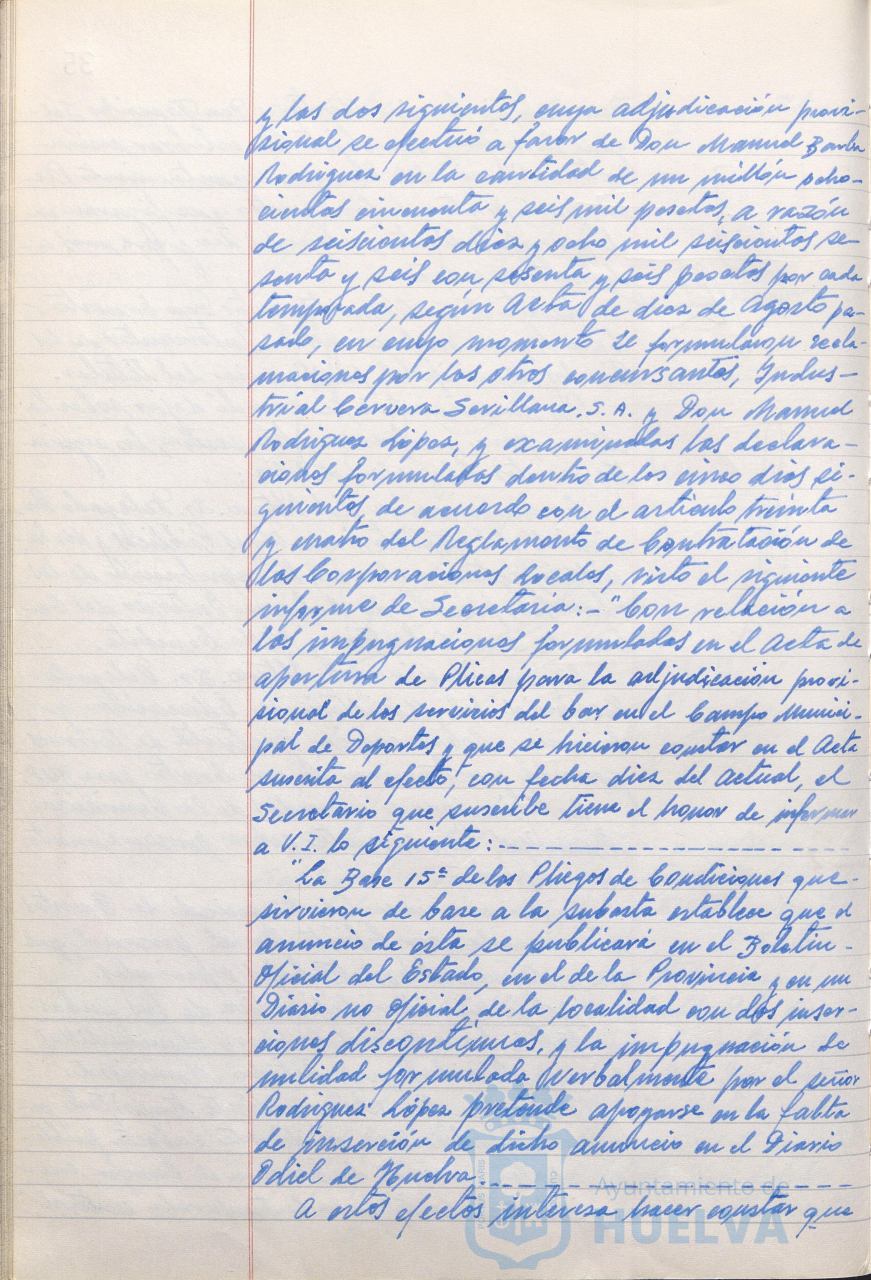 y las dos siguientes, cuya adjudicación provi-
sional se efectuó a favor de Don Manuel Barba
Rodríguez en la cantidad de un millón ocho-
cientas cincuenta y seis mil pesetas, a razón
de seiscientas diez y ocho mil seiscientas se-
senta y seis con sesenta y seis pesetas por cada
temporada, según Acta de diez de Agosto pa-
sado, en cuyo momento se formularon recla-
maciones por los otros concursantes, Indus-
trial Cervera Sevillana, S.A. y Don Manuel
Rodríguez López, y examinadas las declara-
ciones formuladas dentro de los cinco días si-
guientes, de acuerdo con el artículo treinta
y cuatro del Reglamento de Contratación de
las Corporaciones Locales, visto el siguiente
informe de Secretaría:- "Con relación a
las impugnaciones formuladas en el Acta de
apertura de Plicas para la adjudicación provi-
sional de los servicios del bar en el Campo Munici-
pal de Deportes y que se hicieron constar en el Acta
suscrita al efecto, con fecha diez del actual, el
Secretario que suscribe tiene el honor de informar
a V.I. lo siguiente:-
"La Base 15ª de los Pliegos de Condiciones que
sirvieron de base a la subasta establece que el
anuncio de ésta se publicará en el Boletín
Oficial del Estado, en el de la Provincia y en un
Diario no Oficial de la localidad con dos inser-
ciones discontínuas, y la impugnación de
nulidad formulada verbalmente por el señor
Rodríguez López pretende apoyarse en la falta
de inserción de dicho anuncio en el Diario
Odiel de Huelva
A estos efectos interesa hacer constar que
Ayuntamiento de
HUELVA